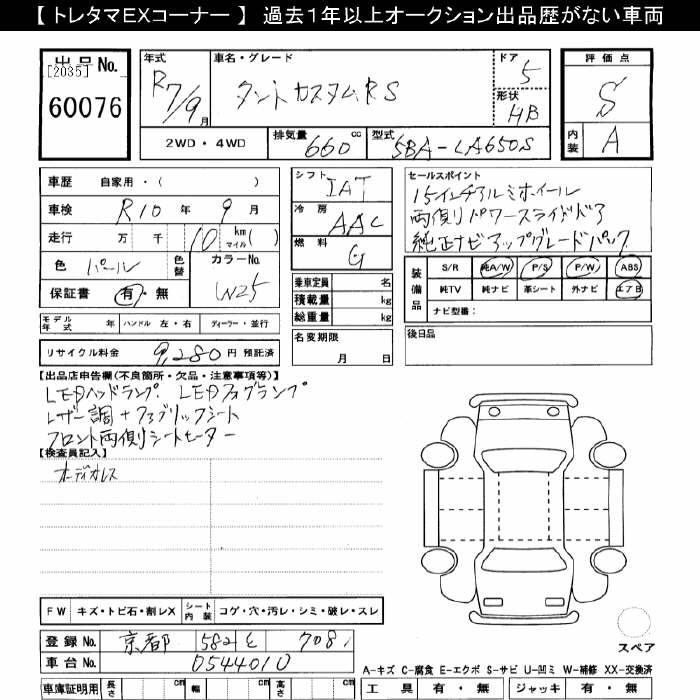 【 トレタマEXコーナー 】 過去1年以上オークション出品歴がない車両
出品 No.
[2035]
60076
年式
R7/9月
車名・グレード
タント カスタム RS
ドア
5
形状
HB
評価点
S
内装
A
2WD・4WD
排気量
660 cc
型式
5BA-LA650S
車歴 自家用・( )
車検 R10 年 9 月
走行 万 千 10 km マイル ( )
色 パール
色替
カラーNo.
W25
保証書 有・無
シフト
IAT
冷房
AAC
燃料
G
乗車定員 名
積載量 kg
総重量 kg
セールスポイント
15インチアルミホイール
両側パワースライドドア
純正ナビアップグレードパック
装備品
S/R 純A/W P/S P/W ABS
純TV 純ナビ 革シート 外ナビ エアB
ナビ型番:
モデル年式 年 ハンドル 左・右 ディーラー・並行
名変期限
月 日
後日品
リサイクル料金 9,280 円 預託済
【出品店申告欄(不良箇所・欠品・注意事項等)】
LEDヘッドランプ. LEDフォグランプ
レザー調+ファブリックシート
フロント両側シートヒーター
【検査員記入】
オーディオレス
FW キズ・トビ石・割レX シート内装 コゲ・穴・汚レ・シミ・破レ・スレ
登録 No. 京都 582 を 7081
車台 No. 0544010
車庫証明用 長さ cm 幅 cm 高さ cm
スペア
A-キズ C-腐食 E-エクボ S-サビ U-凹ミ W-補修 XX-交換済
工具 有・無 ジャッキ 有・無